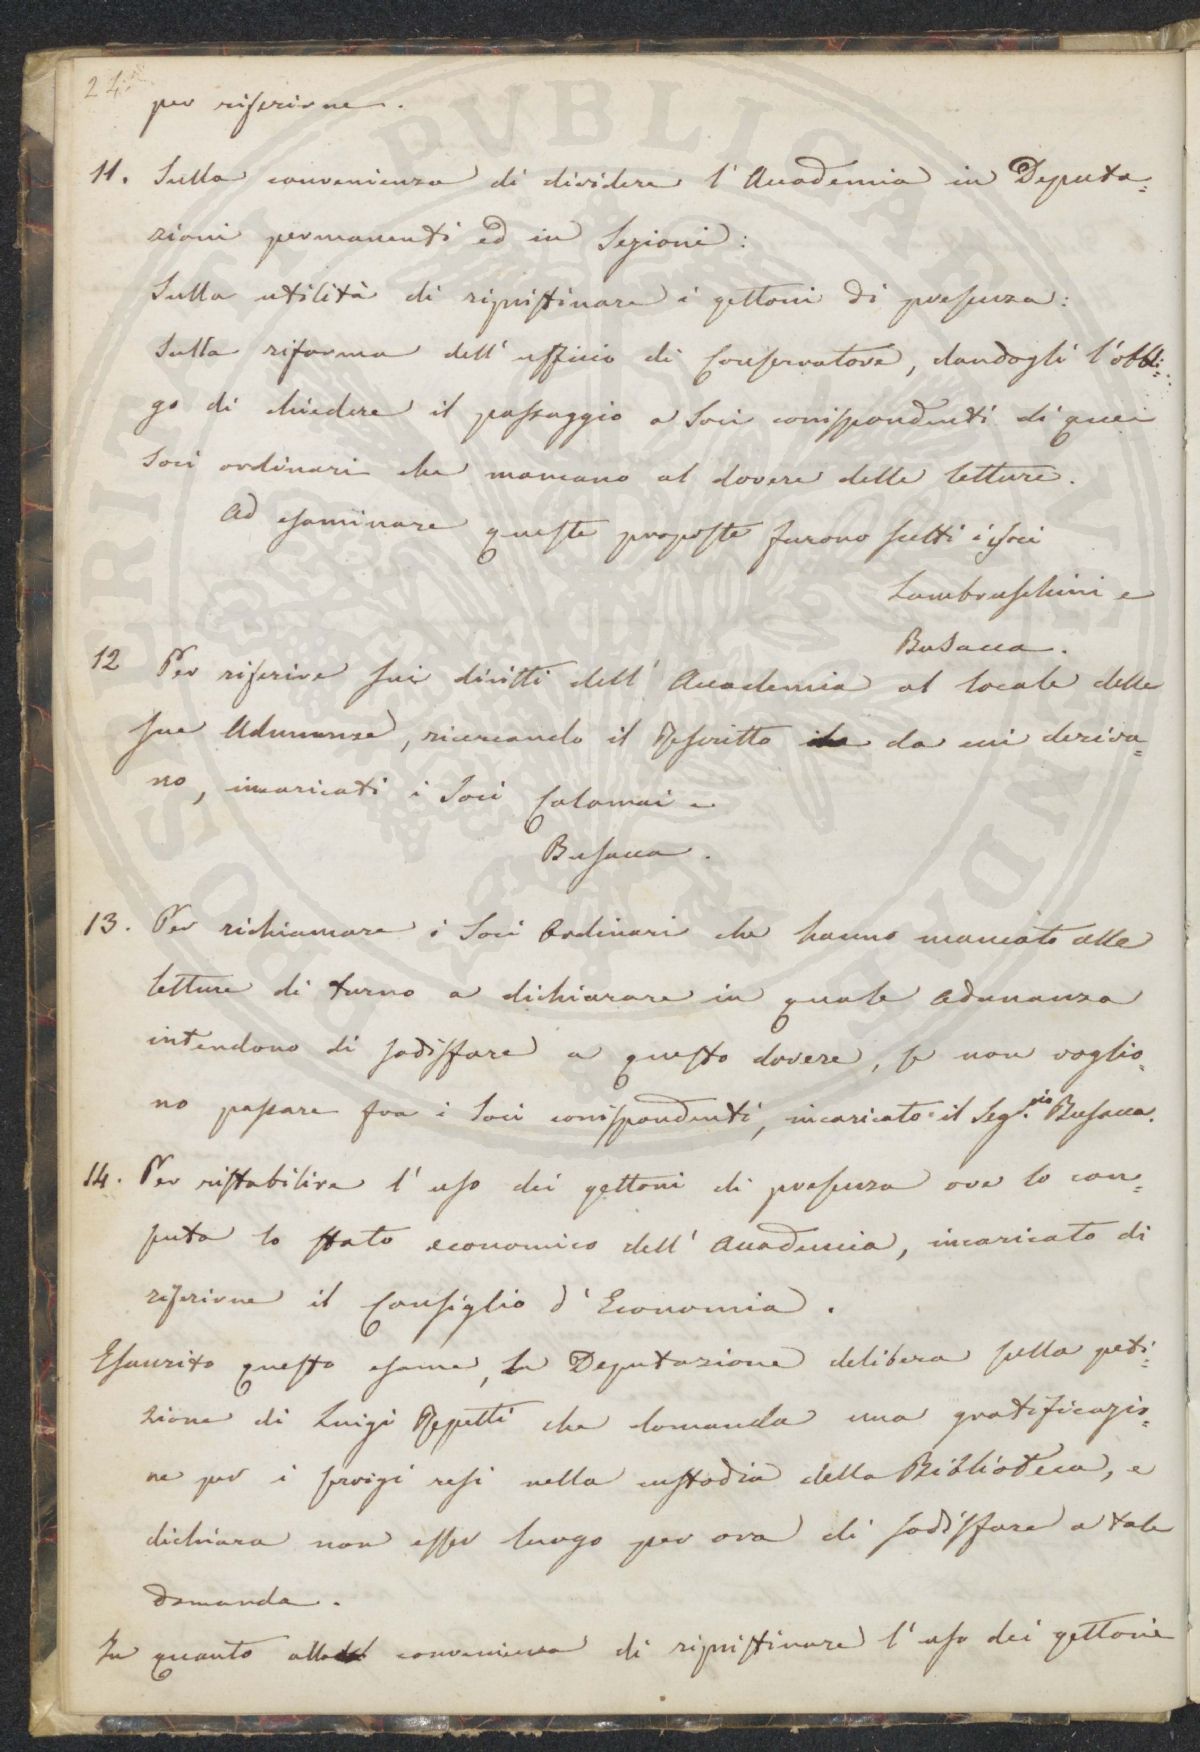 24.
per riferirne.
11. Sulla convenienza di dividere l'Accademia in Deputa=
zioni permanenti ed in Sezioni:
Sulla utilità di ripristinare i gettoni di presenza:
Sulla riforma dell'uffizio di Conservatore, dandogli l'obbli=
go di chiedere il passaggio a Soci corrispondenti di quei
Soci ordinari che mancano al dovere delle letture.
Ad esaminare queste proposte furono scelti i Soci
Lambruschini e
Busacca.
12 Per riferire sui diritti dell'Accademia al locale delle
sue Adunanze, ricercando il Rescritto da cui deriva=
no, incaricati i Soci Calamai e
Busacca.
13. Per richiamare i Soci Ordinari che hanno mancato alle
letture di turno a dichiarare in quale adunanza
intendono di sodisfare a questo dovere, se non voglio=
no passare fra i Soci corrispondenti, incaricato il Seg.rio Busacca.
14. Per ristabilire l'uso dei gettoni di presenza ove lo con=
senta lo stato economico dell'Accademia, incaricato di
riferirne il Consiglio d'Economia.
Esaurito questo esame, la Deputazione delibera sulla peti=
zione di Luigi Repetti che domanda una gratificazio=
ne per i servigi resi nella custodia della Biblioteca, e
dichiara non esser luogo per ora di sodisfare a tale
domanda.
In quanto alla convenienza di ripristinare l'uso dei gettoni
PROSPERITATI PVBLICAE AVGENDAE